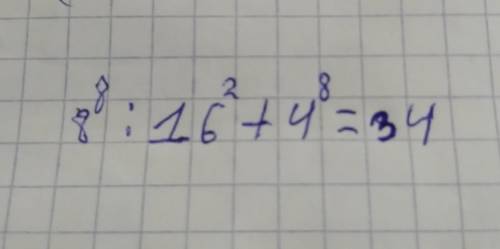 8⁸ : 16² + 4⁸ = 34